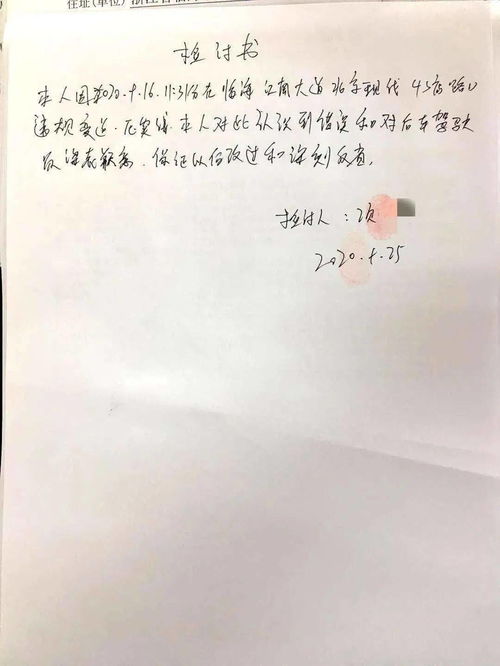 住址(单位)浙江省临
检讨书
本人因2020.9.16.11:31分在临海江南大道北京现代4S店路口
违规变道.压实线.本人对此认识到错误和对后车驾驶
员深表歉意.保证以后改过和深刻反省。
检讨人:项
2020.9.25